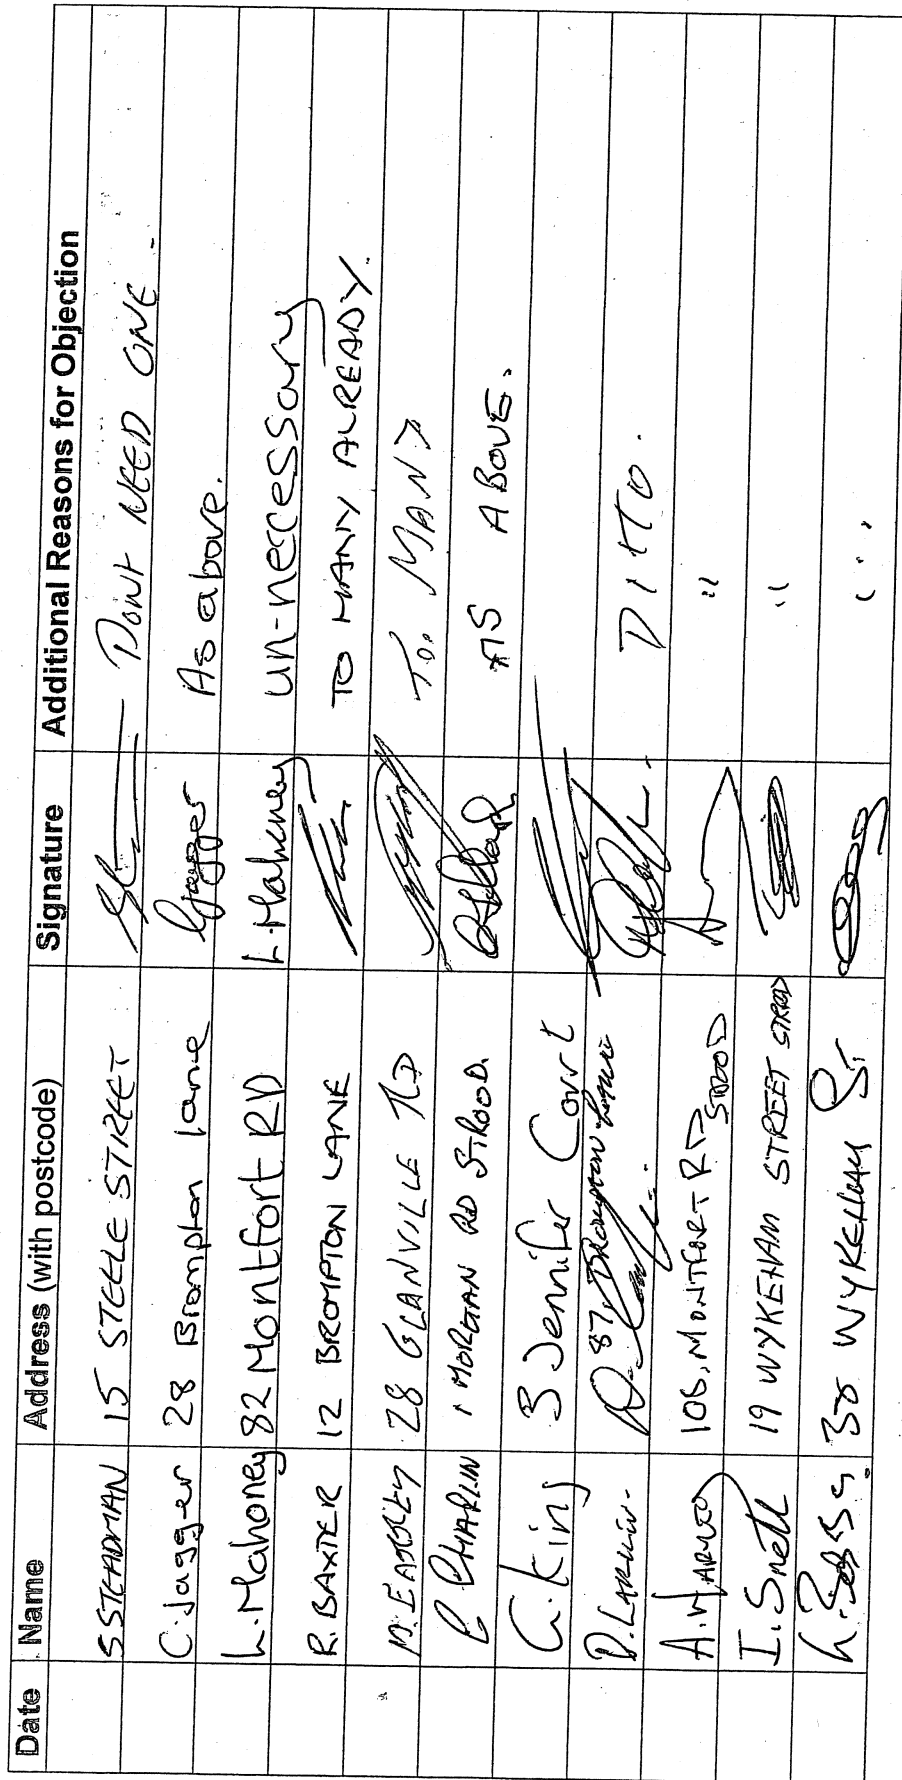 Date Name Address (with postcode) Signature Additional Reasons for Objection
S STEADMAN 15 STEELE STREET DONT NEED ONE.
C. Jagger 28 Brompton lane CJagger As above.
L. Mahoney 82 Montfort RD L. Mahoney un-neccessary
R. BAXTER 12 BROMPTON LANE TO MANY ALREADY.
28 GLANVILLE RD To. MANY
1 MORGAN RD STROOD. AS ABOVE.
G. King 3 Jennifer Court
D. LARKIN. 87, Brompton Lane DITTO.
A. HARVEY 106, MONTFORT RD STROOD "
I. Snell 19 WYKEHAM STREET STROOD "
WYKEHAM ST "